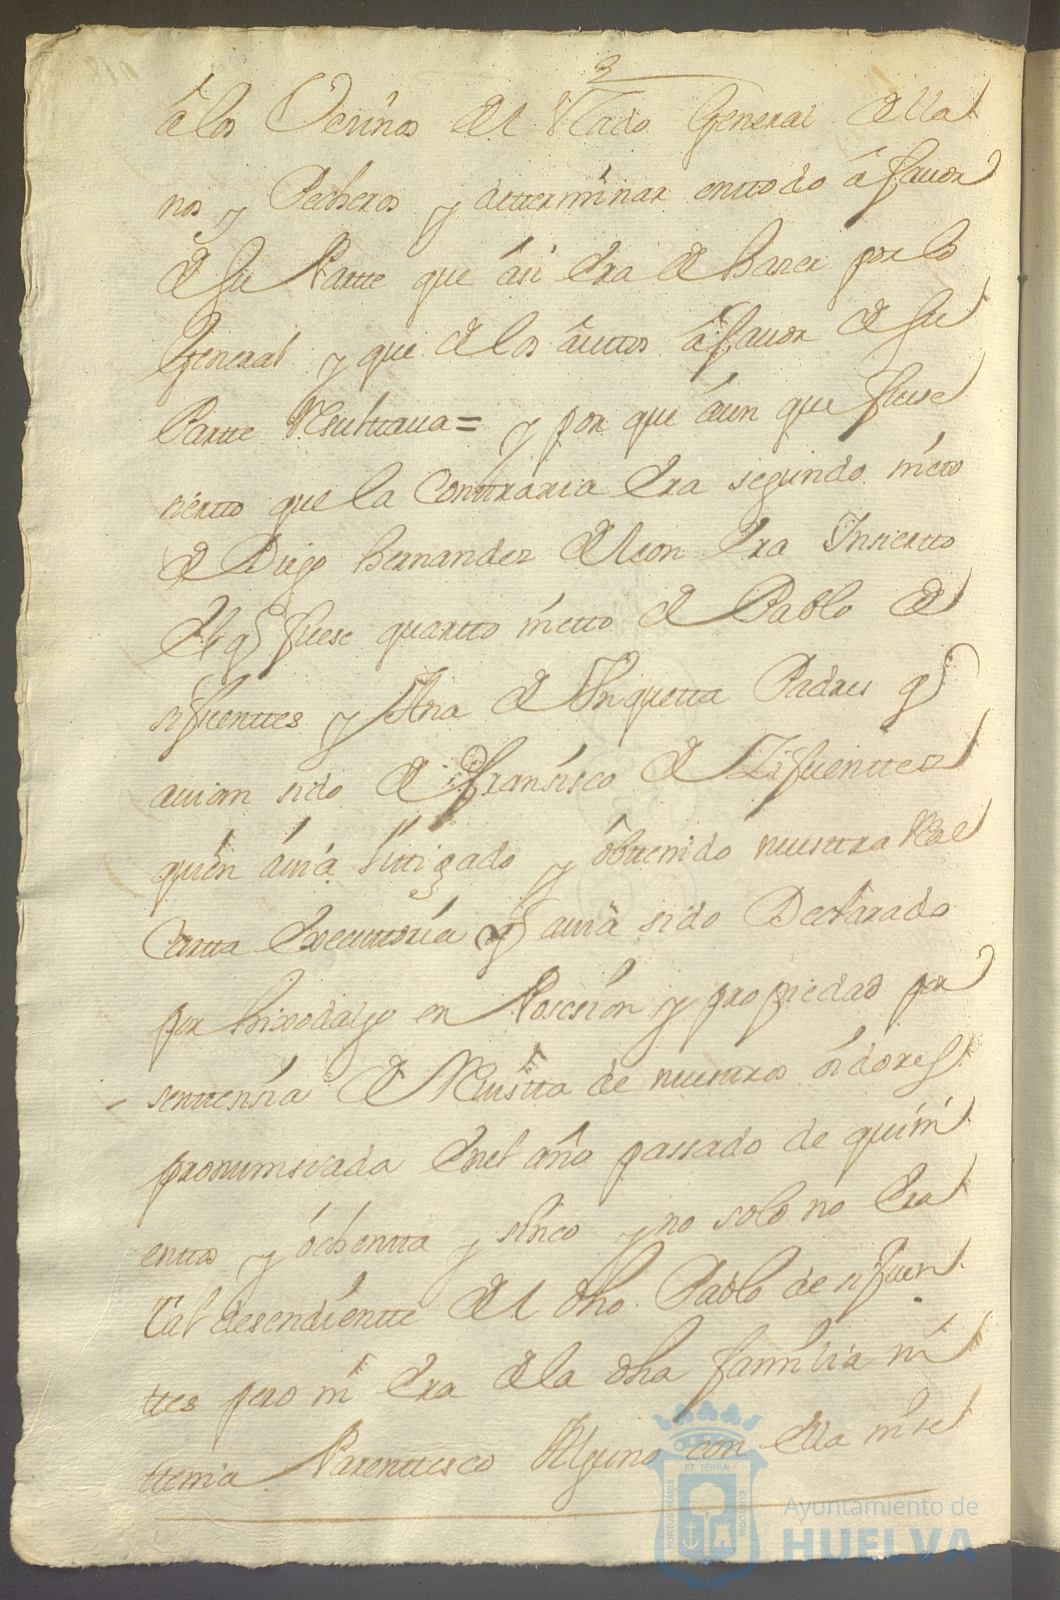 â los Vecinos del Estado General de lla
nos y Pecheros y determinar entodo â favor
de su Parte que âsi Era de haser por lo
General y que de los âuttos âfavor de su
Partte Resulttaua = y por que âun que fuese
siertto que la Conttraria Era segundo nietto
de Diego hernandez de leon Era Insiertto
el q̃ fuese quartto nietto de Pablo de
sifuenttes y Ana de Inquetta Padres q̃
auian sido de Fransisco de Zifuenttes
quien âuia litigado y ôbttenido nuesttra Real
Cartta Executtoria q̃ auia sido Declarado
por hixodalgo en Posesion y propiedad por
senttensia de Reuistta de nuestros oidores
pronumsiada Enel año passado de quini
enttos y ôchentta y sinco y no solo no Era
tal desendientte del dho Pablo de sifuen
ttes pero ni Era dela dha familia ni
ttenia Parenttesco Alguno con Ella nise
PORTUS MARIS
ET TERRAE
CUSTODIA
Ayuntamiento de
HUELVA